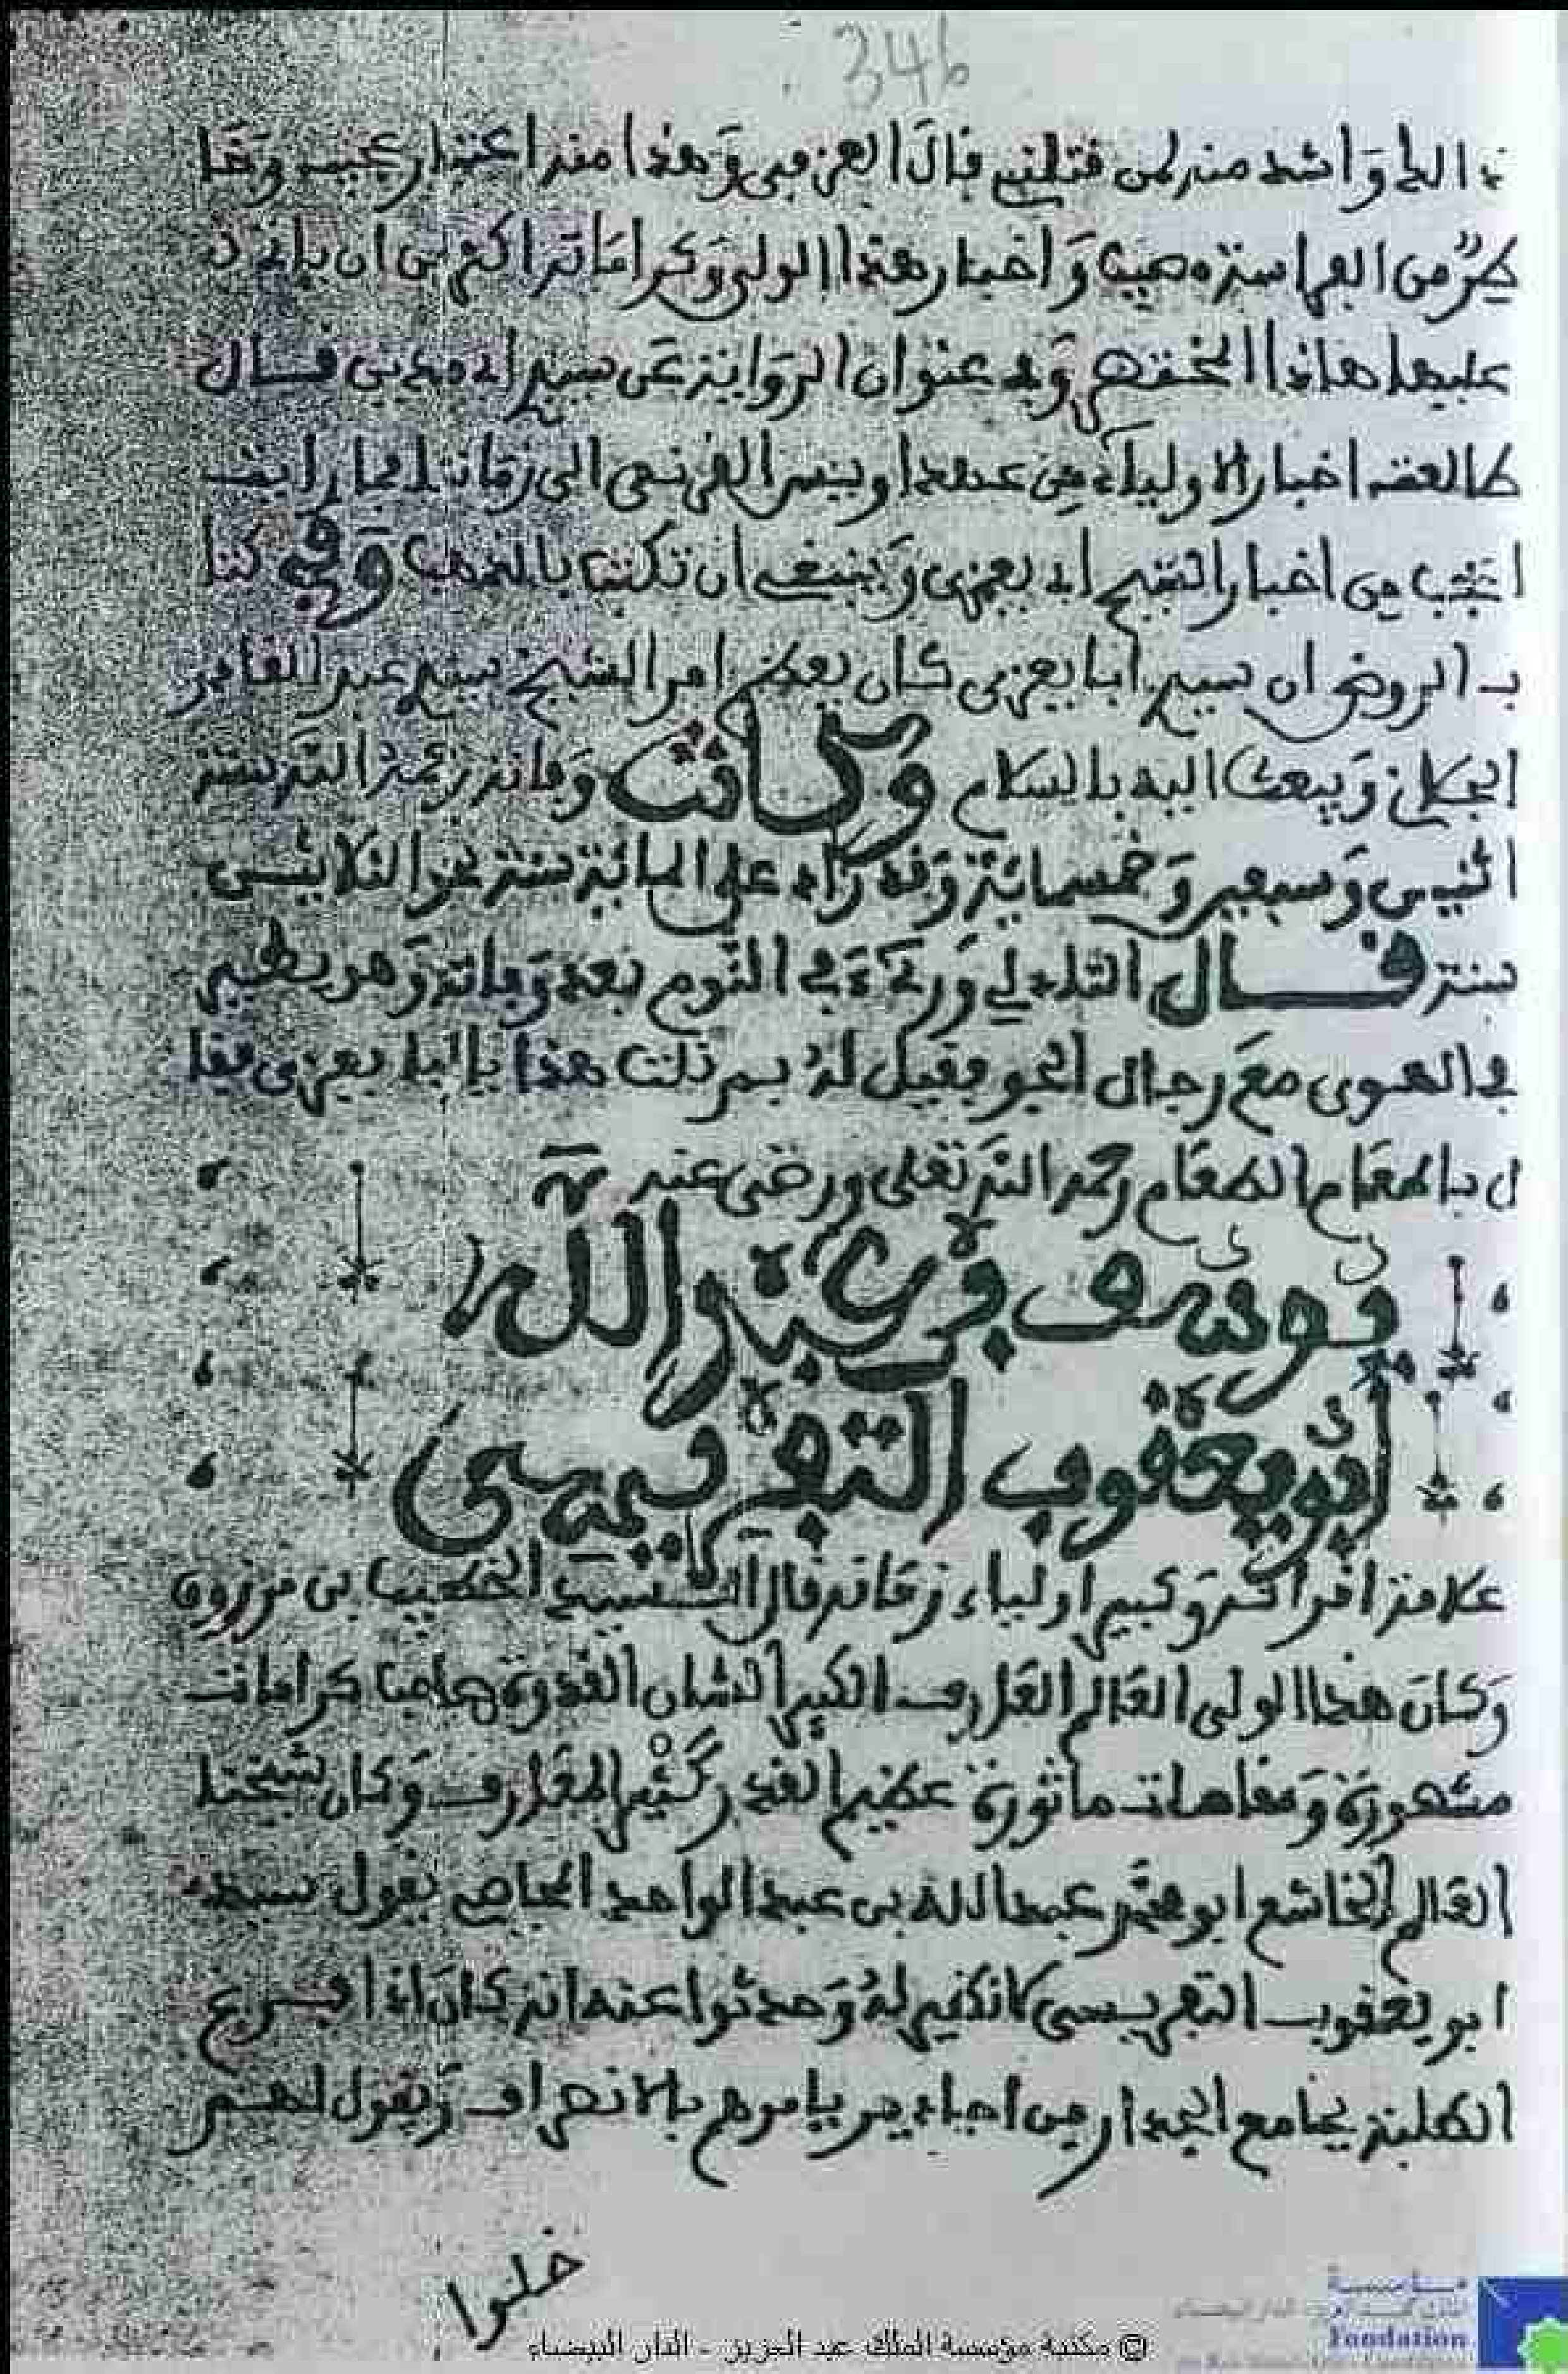 346
الحا وأشد منه لمن فتلني قال العزفي وهذا منه اعتذار عجيب وخا
طر من الفراسة مصيب وأخبار هذا الولي وكراماته أكثر من أن ياتي
عليها هاذا المختصر وفي عنوان الدراية عن سيدي أبي مدين قال
طالعت أخبار الأولياء من عهد أويس القرني إلى زماننا فما رأيت
أعجب من أخبار الشيخ أبي يعزى وينبغي أن تكتب بالذهب وفي كتا
ب الروض أن سيدي أبا يعزى كان يعظم أمر الشيخ سيدي عبد القادر
الجيلاني ويبعث إليه بالسلام وكانت وفاته رحمه الله سنة
اثنين وسبعين وخمسمائة وقد زاد على المائة سنة نحو الثلاثين
سنة قال التادلي ورءي في النوم بعد وفاته وهو يطير
في الهوى مع رجال الجو فقيل له بم نلت هذا يا أبا يعزى فقا
ل بإطعام الطعام رحمه الله تعلى ورضي عنه
يوسف بن عبد الله
أبو يعقوب التفريسي
علامة اقرانه وكبير أولياء زمانه قال الشيخ الخطيب ابن مرزوق
وكان هذا الولي العالم العارف الكبير الشأن القدوة صاحب كرامات
مشهورة ومقامات ماثورة عظيم القدر كثير المعارف وكان شيخنا
العالم الخاشع أبو محمد عبد الله بن عبد الواحد المجاصي يقول سيدي
أبو يعقوب التفريسي لا نظير له وحدثوا عنه أنه كان إذا فرغ
الطلبة بجامع الجدار من أحبابه يامرهم بالانصراف ويقول لهم
خلوا
© مكتبة مؤسسة الملك عبد العزيز - الدار البيضاء
Fondation